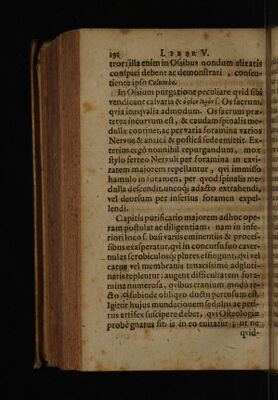 192 LIBER V.
trorsilla enim in Ossibus nondum elixatis
conspici debent ac demonstrari, consen-
tiente ipso Columbo.
In Ossium purgatione peculiare qvid sibi
vendicant calvaria & Os sacrum,
qvia inæqvalia admodum. Os sacrum præ-
terea incurvum est, & caudam spinalis me-
dulla continet, ac per varia foramina varios
Nervos & antica & postica sede emittit. Ex-
terius ergo nonnihil repurgandum, mox
stylo ferreo Nervuli per foramina in cavi-
tatem majorem repellantur, qvi immisso
hamulo in foramen, per qvod spinalis me-
dulla descendit, uncoq; adacto extrahendi,
vel deorsum per inferius foramen expel-
lendi.
Capitis purificatio majorem adhuc ope-
ram postulat ac diligentiam, nam in infe-
riori loco s. basi variis eminentiis & proces-
sibus exasperatur, qvi in concursu suo caver-
nulas scrobiculosq; plures effingunt, qvi vel
carne vel membranis tenacissime adgluti-
natis replentur: augent difficultatem fora-
mina numerosa, qvibus cranium modo re-
cto subinde obliqvo ductu pertusum est.
Igitur hujus mundationem sedulus ac peri-
tus artifex suscipere debet, qvi Osteologiæ
probe gnarus sit: is in eo enitatur, ut ne
qvid-